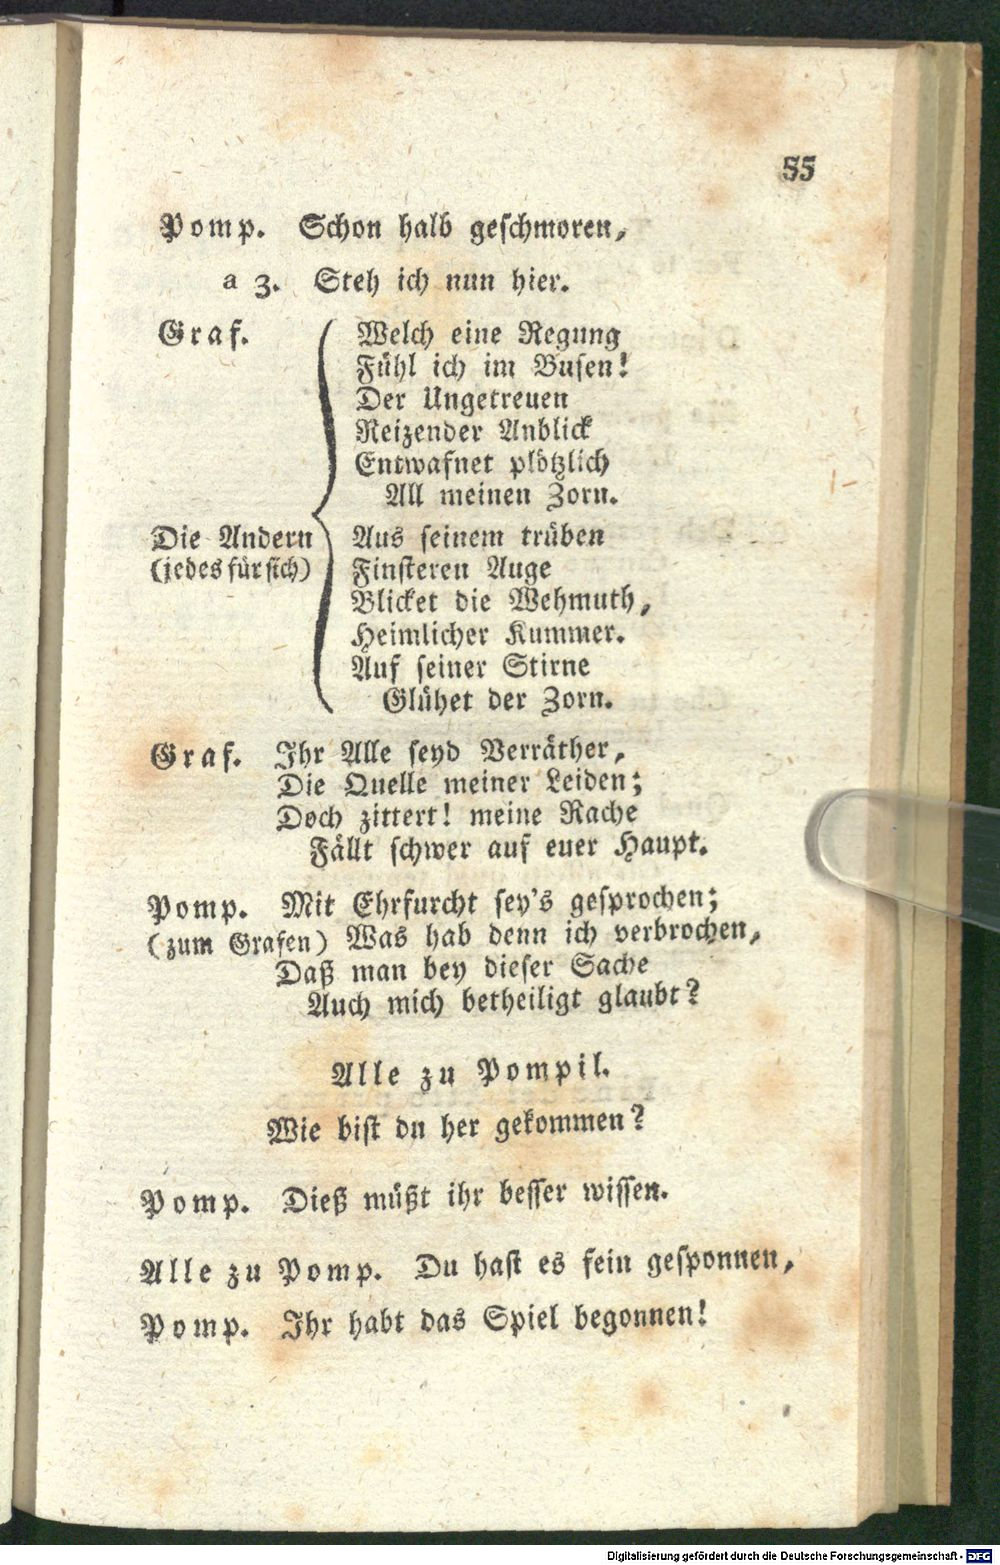 55
Pomp. Schon halb geschmoren,
a 3. Steh ich nun hier.
Graf. Welch eine Regung
Fühl ich im Busen!
Der Ungetreuen
Reizender Anblick
Entwafnet plötzlich
All meinen Zorn.
Die Andern Aus seinem trüben
(jedes für sich) Finsteren Auge
Blicket die Wehmuth,
Heimlicher Kummer.
Auf seiner Stirne
Glühet der Zorn.
Graf. Ihr Alle seyd Verräther,
Die Quelle meiner Leiden;
Doch zittert! meine Rache
Fällt schwer auf euer Haupt.
Pomp. Mit Ehrfurcht sey's gesprochen;
(zum Grafen) Was hab denn ich verbrochen,
Daß man bey dieser Sache
Auch mich betheiligt glaubt?
Alle zu Pompil.
Wie bist du her gekommen?
Pomp. Dieß müßt ihr besser wissen.
Alle zu Pomp. Du hast es fein gesponnen,
Pomp. Ihr habt das Spiel begonnen!
Digitalisierung gefördert durch die Deutsche Forschungsgemeinschaft - DFG